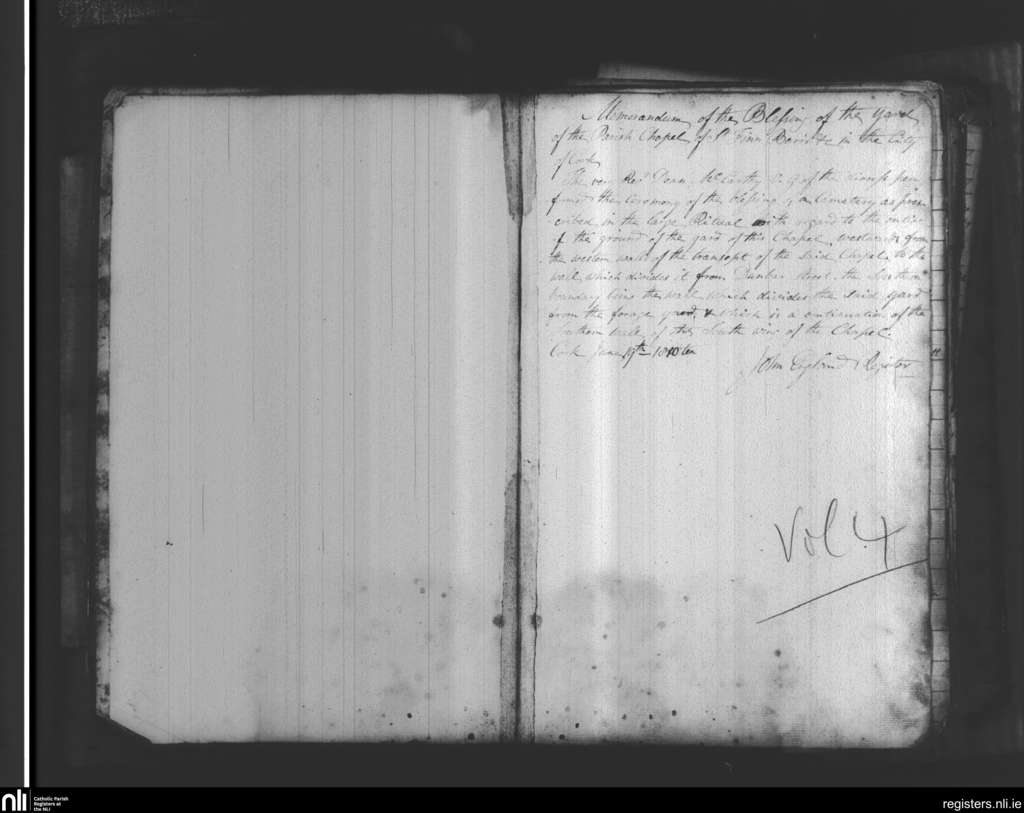 Memorandum of the Blessing of the Yard
of the Parish Chapel of St Finn Barr's &c in the City
of Cork
The very Revd Dean McCarthy V. G. of the diocese per
formed the ceremony of the blessing of a cemetery as pres
cribed in the large Ritual with regard to the entire
of the ground of the yard of this Chapel, westward from
the western walls of the transept of the said Chapel to the
wall which divides it from Dunbar street. the Southern
boundary being the wall which divides the said yard
from the forage yard, & which is a continuation of the
Southern wall of the South wing of the Chapel.
Cork June 19th 1810 ten
John England Register
Vol 4
nli
Catholic Parish
Registers at
the NLI
registers.nli.ie